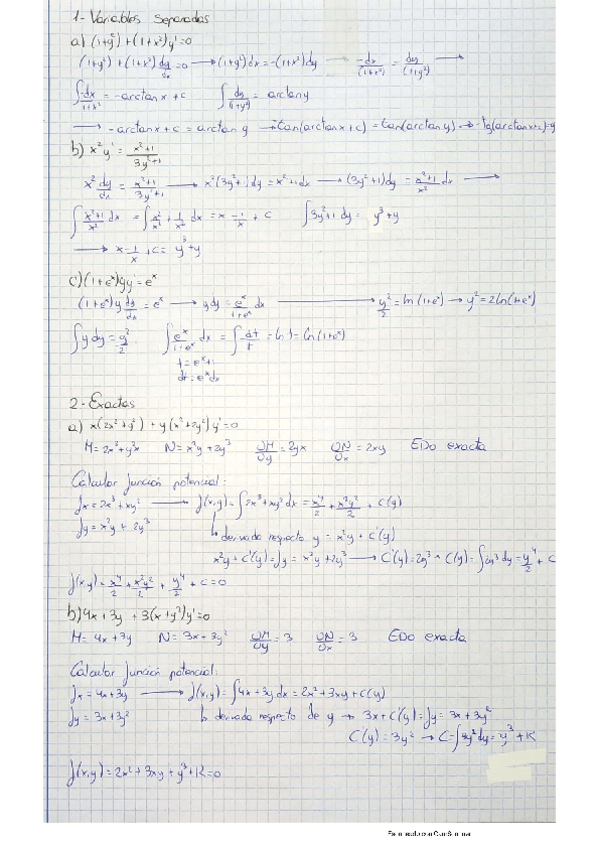 1- Variables separadas
a) (1+y²) + (1+x²)y' = 0
(1+y²) + (1+x²) dy/dx = 0 → (1+y²)dx = -(1+x²)dy → -dx/(1+x²) = dy/(1+y²) →
∫ -dx/1+x² = -arctan x + c ∫ dy/(1+y²) = arctan y
→ -arctan x + c = arctan y → tan(arctan x + c) = tan(arctan y) → -tg(arctan x+c) = y
b) x²y' = x²+1/3y²+1
x² dy/dx = x²+1/3y²+1 → x²(3y²+1)dy = x²+1dx → (3y²+1)dy = x²+1/x² dx →
∫ x²+1/x² dx = ∫ x²/x² + 1/x² dx = x - 1/x + c ∫ 3y²+1 dy = y³+y
→ x - 1/x + c = y³+y
c) (1+eˣ)yy' = eˣ
(1+eˣ)y dy/dx = eˣ → y dy = eˣ/1+eˣ dx → y²/2 = ln(1+eˣ) → y² = 2ln(1+eˣ)
∫ y dy = y²/2 ∫ eˣ/1+eˣ dx = ∫ dt/t = ln t = ln(1+eˣ)
t = eˣ+1
dt = eˣdx
2- Exactas
a) x(2x²+y²) + y(x²+2y²)y' = 0
M = 2x³+y²x N = x²y + 2y³ ∂M/∂y = 2yx ∂N/∂x = 2xy EDO exacta
Calcular función potencial:
fx = 2x³ + xy² → f(x,y) = ∫ 2x³ + xy² dx = x⁴/2 + x²y²/2 + c(y)
fy = x²y + 2y³
↳ derivada respecto y = x²y + c'(y)
x²y + c'(y) = fy = x²y + 2y³ → C'(y) = 2y³ → C(y) = ∫ 2y³ dy = y⁴/2 + C
f(x,y) = x⁴/2 + x²y²/2 + y⁴/2 + c = 0
b) 4x + 3y + 3(x+y²)y' = 0
M = 4x + 3y N = 3x + 3y² ∂M/∂y = 3 ∂N/∂x = 3 EDO exacta
Calcular función potencial:
fx = 4x + 3y → f(x,y) = ∫ 4x + 3y dx = 2x² + 3xy + c(y)
fy = 3x + 3y² ↳ derivada respecto de y → 3x + C'(y) = fy = 3x + 3y²
C'(y) = 3y² → C = ∫ 3y² dy = y³ + K
f(x,y) = 2x² + 3xy + y³ + K = 0